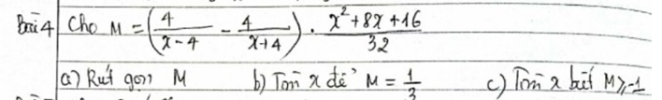 Bài 4 Cho M = (4/(x-4) - 4/(x+4)) . (x²+8x+16)/32
a) Rút gọn M b) Tìm x để M = 1/3 c) Tìm x biết M ≥ -1